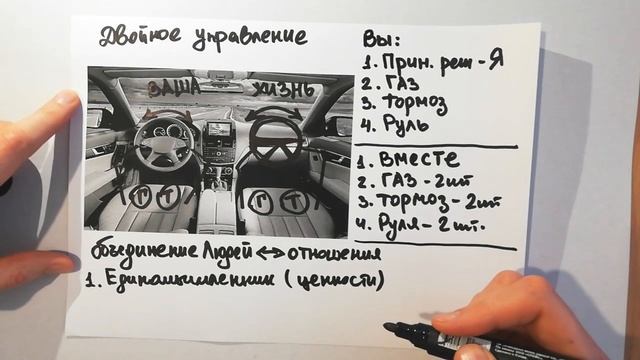 Двойное управление
ВАША ЖИЗНЬ
Г Т Г Т
Вы:
1. Прин. реш - Я
2. ГАЗ
3. Тормоз
4. Руль
1. Вместе
2. ГАЗ - 2шт
3. Тормоз - 2шт
4. Руля - 2шт.
Объединение Людей ↔ отношения
1. Единомышленники (ценности)